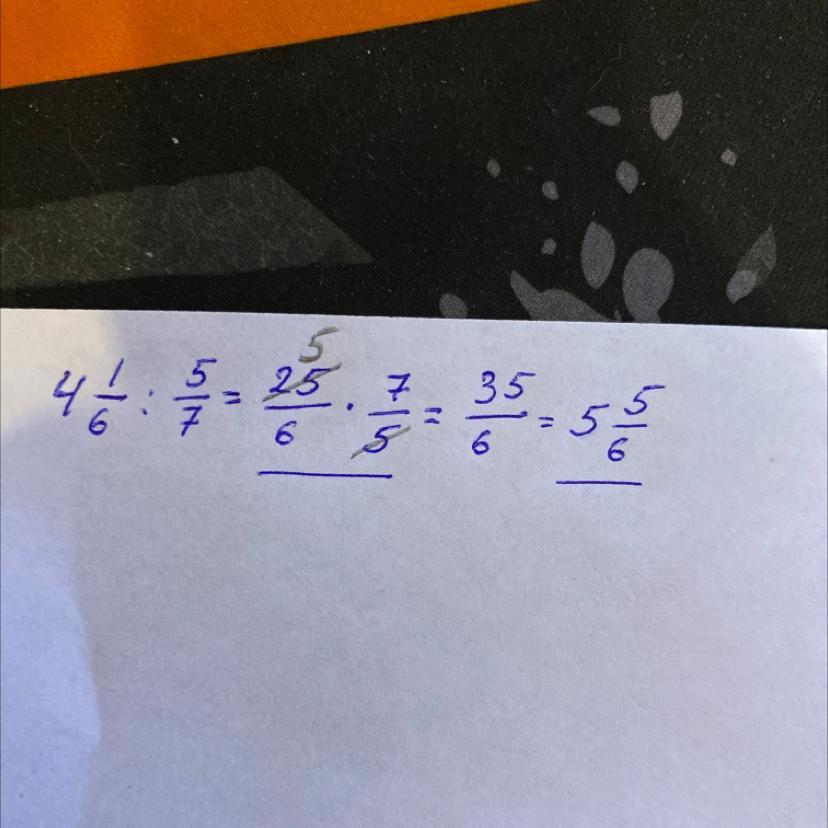 4 1/6 : 5/7 = 25/6 · 7/5 = 35/6 = 5 5/6
5